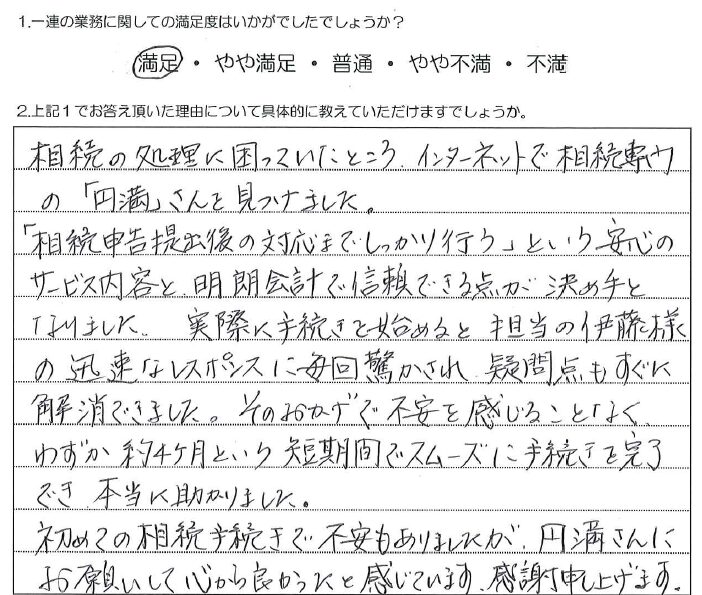 1.一連の業務に関しての満足度はいかがでしたでしょうか?
満足・やや満足・普通・やや不満・不満
2.上記1でお答え頂いた理由について具体的に教えていただけますでしょうか。
相続の処理に困っていたところ、インターネットで相続専門
の「円満」さんを見つけました。
「相続申告提出後の対応までしっかり行う」という安心の
サービス内容と明朗会計で信頼できる点が決め手と
なりました。 実際に手続きを始めると担当の伊藤様
の迅速なレスポンスに毎回驚かされ 疑問点もすぐに
解消できました。そのおかげで不安を感じることなく、
わずか約4ケ月という短期間でスムーズに手続きを完了
でき 本当に助かりました。
初めての相続手続きで不安もありましたが、円満さんに
お願いして心から良かったと感じています。感謝申し上げます。